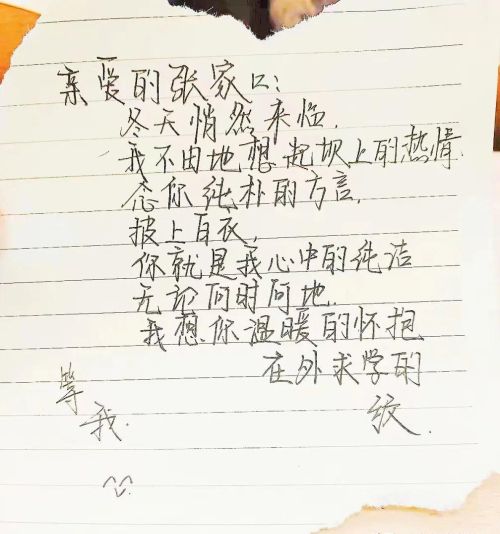 亲爱的张家口：
冬天悄然来临.
我不由地想起坝上的热情.
念你纯朴的方言,
披上白衣,
你就是我心中的纯洁
无论何时何地.
我想你温暖的怀抱
在外求学的
等
我.